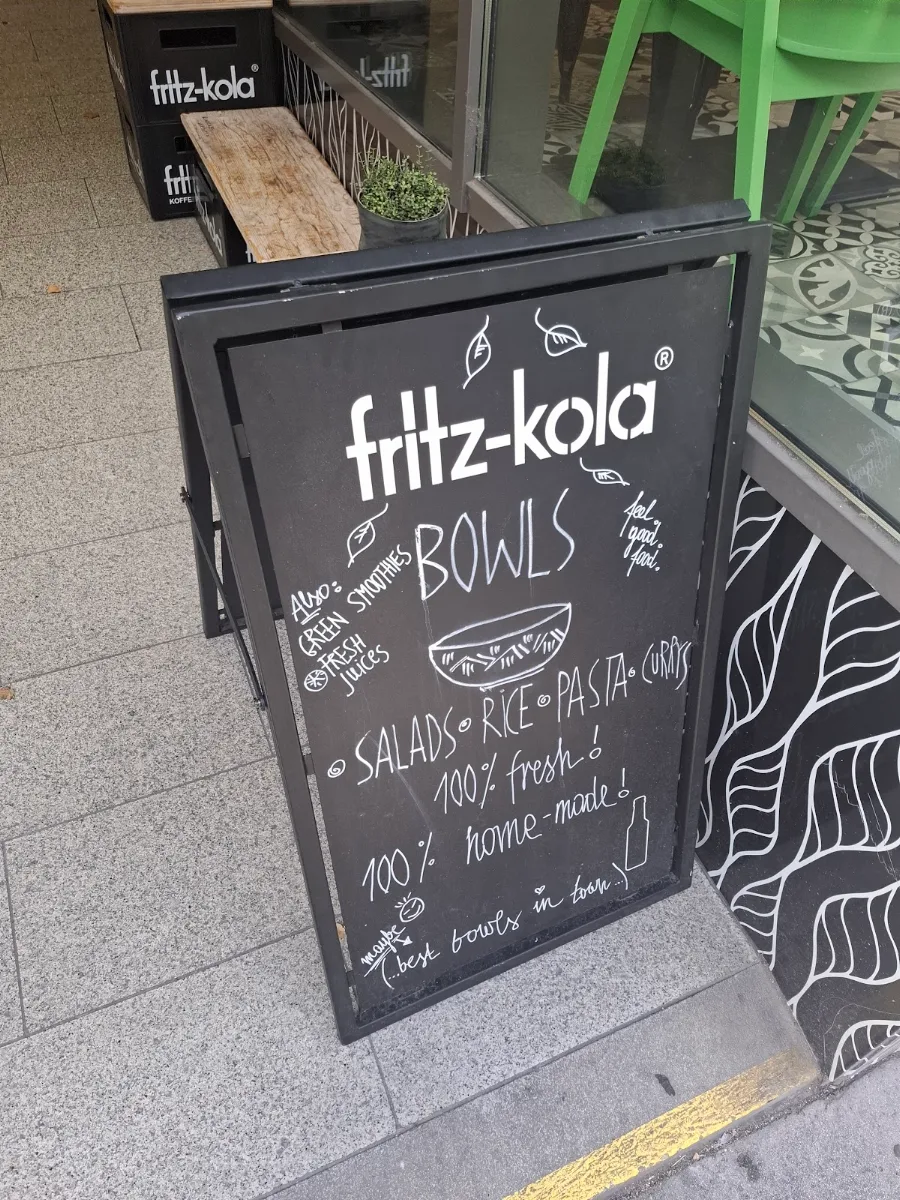 fritz-kola®
fritz-kola
frit
KOFFE
fritz-kola®
BOWLS
feel.
good.
food.
Also:
GREEN SMOOTHIES
FRESH
JUICES
SALADS RICE PASTA CURRYS
100% fresh!
100% home-made!
maybe
(...best bowls in town..)